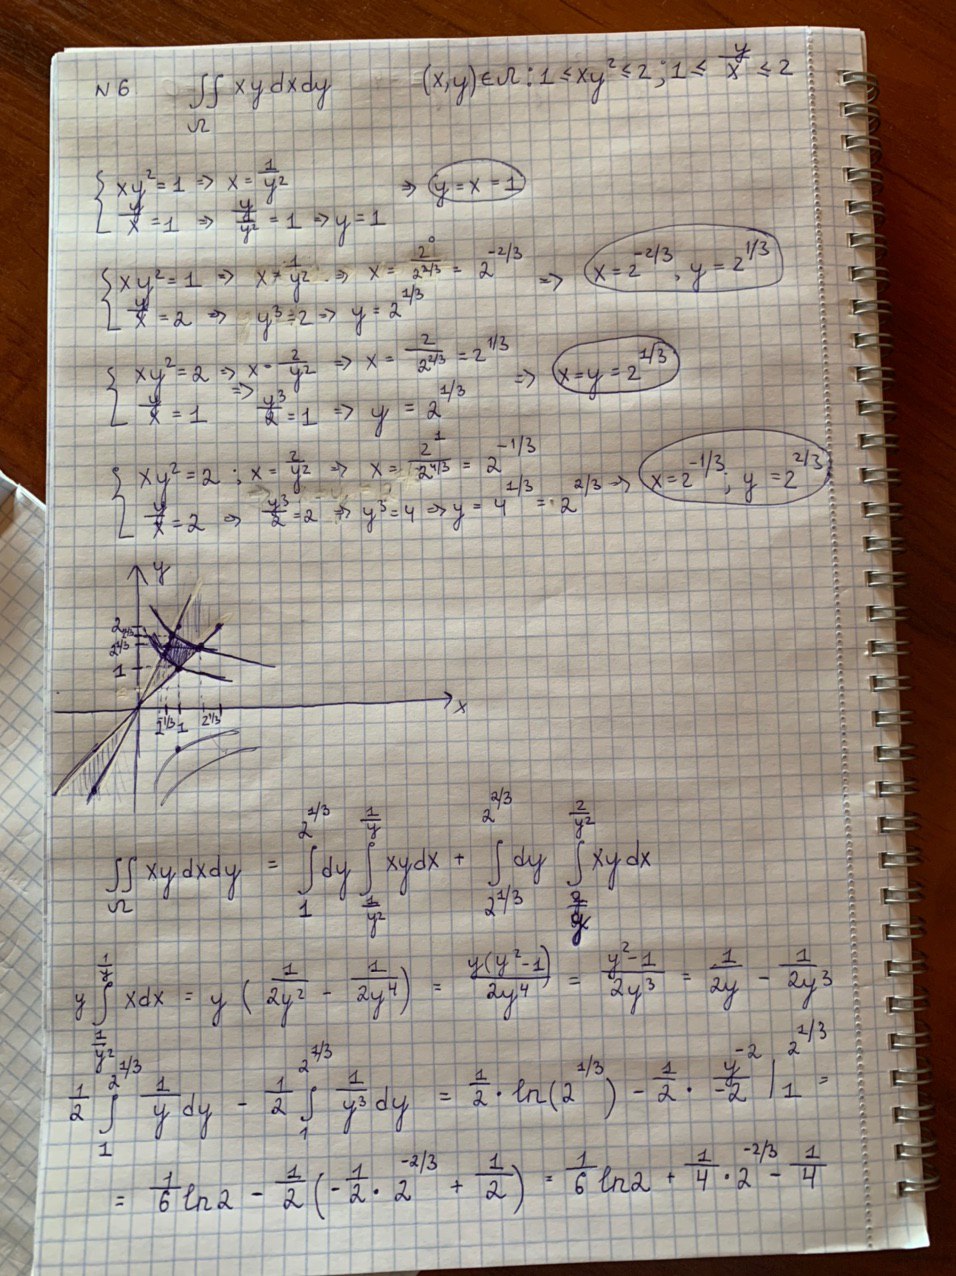 N6 ∬_Ω xy dx dy (x,y)∈Ω: 1 ≤ xy² ≤ 2 ; 1 ≤ y/x ≤ 2
{ xy² = 1 ⇒ x = 1/y² ⇒ y = x = 1
y/x = 1 ⇒ y/(1/y²) = 1 ⇒ y = 1
{ xy² = 1 ⇒ x = 1/y² ⇒ x = 2⁰/2^(2/3) = 2^(-2/3) ⇒ x = 2^(-2/3), y = 2^(1/3)
y/x = 2 ⇒ y³ = 2 ⇒ y = 2^(1/3)
{ xy² = 2 ⇒ x = 2/y² ⇒ x = 2/2^(2/3) = 2^(1/3) ⇒ x = y = 2^(1/3)
y/x = 1 ⇒ y³/2 = 1 ⇒ y = 2^(1/3)
{ xy² = 2 ; x = 2/y² ⇒ x = 2¹/2^(4/3) = 2^(-1/3) ⇒ x = 2^(-1/3); y = 2^(2/3)
y/x = 2 ⇒ y³/2 = 2 ⇒ y³ = 4 ⇒ y = 4^(1/3) = 2^(2/3)
y
2
2^(2/3)
2^(1/3)
1
x
1
2^(1/3)
∬_Ω xy dx dy = ∫_1^(2^(1/3)) dy ∫_(1/y²)^(1/y) xy dx + ∫_(2^(1/3))^(2^(2/3)) dy ∫^(2/y²) xy dx
y ∫_(1/y²)^(1/y) x dx = y (1/(2y²) - 1/(2y⁴)) = y(y²-1)/(2y⁴) = (y²-1)/(2y³) = 1/(2y) - 1/(2y³)
1/2 ∫_1^(2^(1/3)) 1/y dy - 1/2 ∫_1^(2^(1/3)) 1/y³ dy = 1/2 · ln(2^(1/3)) - 1/2 · y^(-2)/(-2) |_1^(2^(1/3)) =
= 1/6 ln2 - 1/2 (-1/2 · 2^(-2/3) + 1/2) = 1/6 ln2 + 1/4 · 2^(-2/3) - 1/4